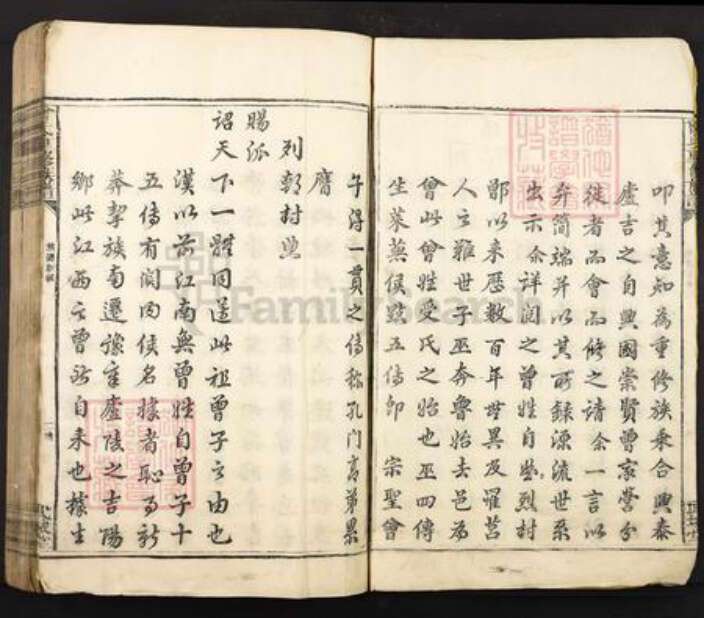 叩其意知為重修族乘合興泰
廬吉之自興國崇賢曾家營分
徙者而會而修之請余一言以
弁簡端并以其所録源流世系
出示余詳閱之曾姓自 烈村
鄫以来歷数百年世異及羅莒
人之難世子巫奔魯始去邑為
曾此曾姓受氏之始也巫四傳
生菜蕪侯點五傳即 宗聖曾
子得一貫之傳称孔门高弟累
膺
列朝封典
賜派
詔天下一體同遵此祖曾子之由也
漢以前江南無曾姓自曾子十
五傳有関内侯名據者恥事新
莽挈族南遷豫章廬陵之吉陽
鄉此江西之曾所自来也據生
FamilySearch